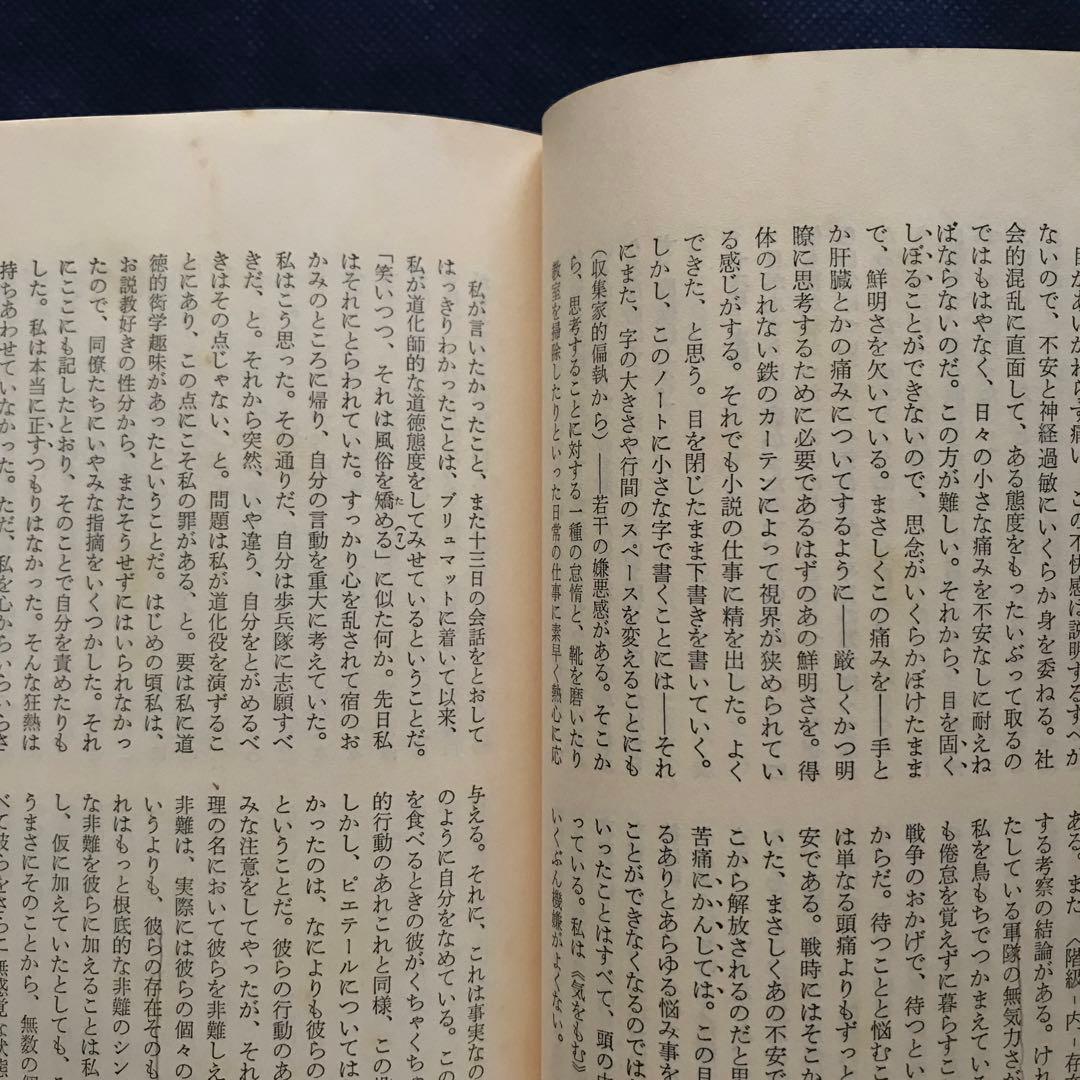 目があいかわらず痛い。この不快感は説明するすべが
ないので、不安と神経過敏にいくらか身を委ねる。社
会的混乱に直面して、ある態度をもったいぶって取るの
ではもはやなく、日々の小さな痛みを不安なしに耐えね
ばならないのだ。この方が難しい。それから、目を固く
しぼることができないので、思念がいくらかぼけたまま
で、鮮明さを欠いている。まさしくこの痛みを――手と
か肝臓とかの痛みについてするように――厳しくかつ明
瞭に思考するために必要であるはずのあの鮮明さを。得
体のしれない鉄のカーテンによって視界が狭められてい
る感じがする。それでも小説の仕事に精を出した。よく
できた、と思う。目を閉じたまま下書きを書いていく。
しかし、このノートに小さな字で書くことには――それ
にまた、字の大きさや行間のスペースを変えることにも
(収集家的偏執から)――若干の嫌悪感がある。そこか
ら、思考することに対する一種の怠惰と、靴を磨いたり
教室を掃除したりといった日常の仕事に素早く熱心に応
る。また〈階級-内-存在
する考察の結論がある。けれ
たしている軍隊の無気力さが
私を鳥もちでつかまえてい
も倦怠を覚えずに暮らすこ
戦争のおかげで、待つとい
からだ。待つことと悩むこ
は単なる頭痛よりもずっと
安である。戦時にはそこか
いた、まさしくあの不安で
こから解放されるのだと思
苦痛にかんしては。この目
るありとあらゆる悩み事を
ことができなくなるのでは
いったことはすべて、頭の中
っている。私は《気をもむ》
いくぶん機嫌がよくない。
私が言いたかったこと、また十三日の会話をとおして
はっきりわかったことは、ブリュマットに着いて以来、
私が道化師的な道徳態度をしてみせているということだ。
「笑いつつ、それは風俗を矯める(7)」に似た何か。先日私
はそれにとらわれていた。すっかり心を乱されて宿のお
かみのところに帰り、自分の言動を重大に考えていた。
私はこう思った。その通りだ、自分は歩兵隊に志願すべ
きだ、と。それから突然、いや違う、自分をとがめるべ
きはその点じゃない、と。問題は私が道化役を演ずるこ
とにあり、この点にこそ私の罪がある、と。要は私に道
徳的衒学趣味があったということだ。はじめの頃私は、
お説教好きの性分から、またそうせずにはいられなかっ
たので、同僚たちにいやみな指摘をいくつかした。それ
にここにも記したとおり、そのことで自分を責めたりも
した。私は本当に正すつもりはなかった。そんな狂熱は
持ちあわせていなかった。ただ、私を心からいらいらさ
与える。それに、これは事実なの
のように自分をなめている。この
を食べるときの彼がくちゃくち
的行動のあれこれと同様、この
しかし、ピエテールについては
かったのは、なによりも彼らの
ということだ。彼らの行動のあ
みな注意をしてやったが、それ
理の名において彼らを非難しえ
非難は、実際には彼らの個々の
いうよりも、彼らの存在そのも
れはもっと根底的な非難のシン
な非難を彼らに加えることは私
し、仮に加えていたとしても、
うまさにそのことから、無数の個
べて彼らをさらに無感覚な状態